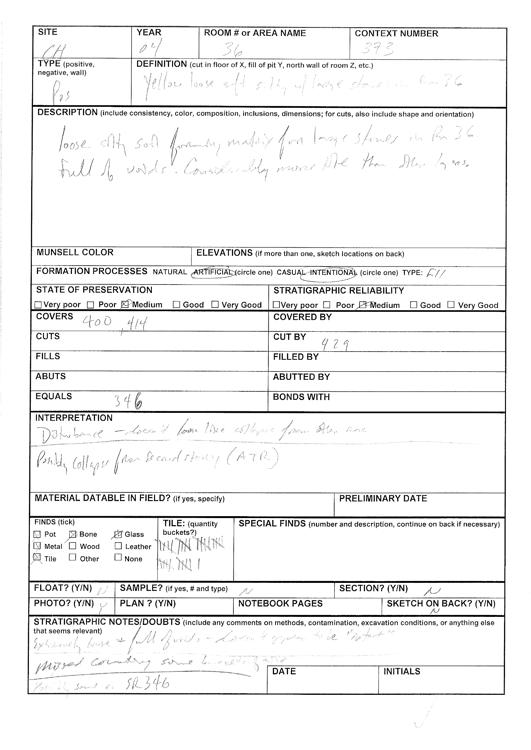 SITE YEAR ROOM # or AREA NAME CONTEXT NUMBER
CH 04 36 373
TYPE (positive, negative, wall) DEFINITION (cut in floor of X, fill of pit Y, north wall of room Z, etc.)
Pos Yellow loose soft silty w/ large stones in Rm 36
DESCRIPTION (include consistency, color, composition, inclusions, dimensions; for cuts, also include shape and orientation)
loose silty soil forming matrix for large stones in Rm 36
full of voids. Considerably more tile than other
MUNSELL COLOR ELEVATIONS (if more than one, sketch locations on back)
FORMATION PROCESSES NATURAL ARTIFICIAL (circle one) CASUAL INTENTIONAL (circle one) TYPE: Fill
STATE OF PRESERVATION STRATIGRAPHIC RELIABILITY
Very poor Poor Medium Good Very Good Very poor Poor Medium Good Very Good
COVERS 400, 414 COVERED BY
CUTS CUT BY 429
FILLS FILLED BY
ABUTS ABUTTED BY
EQUALS 346 BONDS WITH
INTERPRETATION
Disturbance - doesn't look like collapse from
Possibly collapse from second story (ATR)
MATERIAL DATABLE IN FIELD? (if yes, specify) PRELIMINARY DATE
FINDS (tick) TILE: (quantity buckets?) SPECIAL FINDS (number and description, continue on back if necessary)
Pot Bone Glass
Metal Wood Leather
Tile Other None
FLOAT? (Y/N) N SAMPLE? (if yes, # and type) N SECTION? (Y/N) N
PHOTO? (Y/N) Y PLAN ? (Y/N) NOTEBOOK PAGES SKETCH ON BACK? (Y/N) N
STRATIGRAPHIC NOTES/DOUBTS (include any comments on methods, contamination, excavation conditions, or anything else that seems relevant)
Extremely loose + full
moved
DATE INITIALS
same as SR346